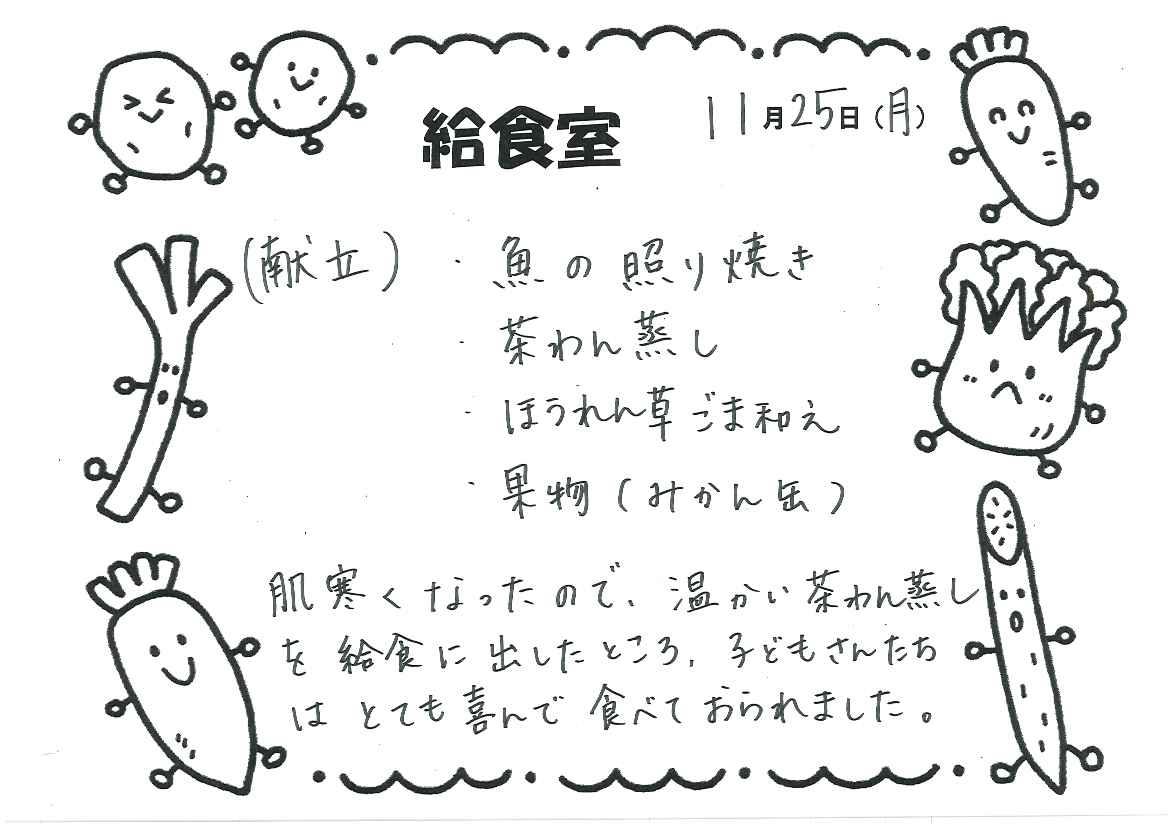 給食室
11月25日(月)
(献立) ・魚の照り焼き
・茶わん蒸し
・ほうれん草ごま和え
・果物(みかん缶)
肌寒くなったので、温かい茶わん蒸し
を給食に出したところ、子どもさんたち
はとても喜んで食べておられました。